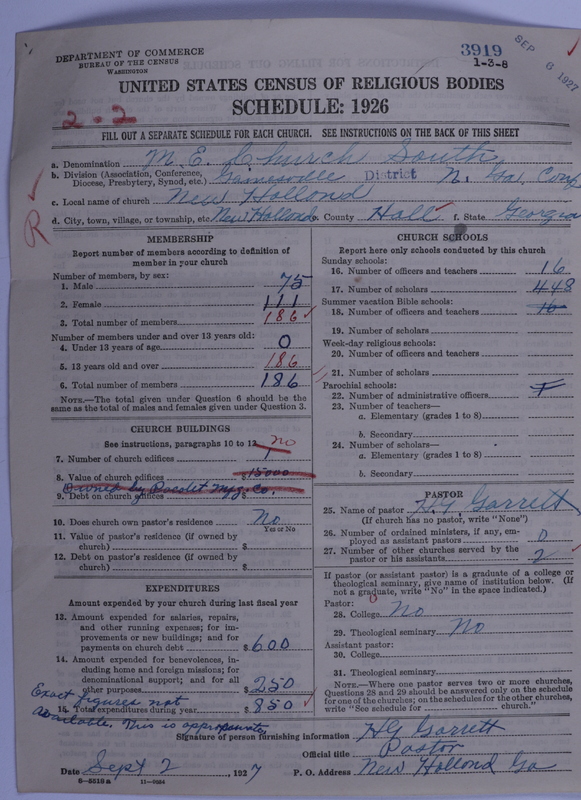 DEPARTMENT OF COMMERCE
BUREAU OF THE CENSUS
WASHINGTON
3919
1-3-8
SEP 6 1927
UNITED STATES CENSUS OF RELIGIOUS BODIES
SCHEDULE: 1926
2-2
FILL OUT A SEPARATE SCHEDULE FOR EACH CHURCH. SEE INSTRUCTIONS ON THE BACK OF THIS SHEET
a. Denomination M. E. Church South
b. Division (Association, Conference, Diocese, Presbytery, Synod, etc.) Gainesville District N. Ga. Conf
c. Local name of church New Holland
d. City, town, village, or township, etc. New Holland e. County Hall f. State Georgia
R
MEMBERSHIP
Report number of members according to definition of
member in your church
Number of members, by sex:
1. Male 75
2. Female 111
3. Total number of members 186
Number of members under and over 13 years old:
4. Under 13 years of age 0
5. 13 years old and over 186
6. Total number of members 186
NOTE.—The total given under Question 6 should be the
same as the total of males and females given under Question 3.
CHURCH BUILDINGS
See instructions, paragraphs 10 to 12 no
7. Number of church edifices 1
8. Value of church edifices $15000
Owned by Pacolet Mfg. Co.
9. Debt on church edifices $
10. Does church own pastor's residence No
Yes or No
11. Value of pastor's residence (if owned by
church) $
12. Debt on pastor's residence (if owned by
church) $
EXPENDITURES
Amount expended by your church during last fiscal year
13. Amount expended for salaries, repairs,
and other running expenses; for im-
provements or new buildings; and for
payments on church debt $600
14. Amount expended for benevolences, in-
cluding home and foreign missions; for
denominational support; and for all
other purposes $250
15. Total expenditures during year $850
Exact figures not
available. This is approximate
CHURCH SCHOOLS
Report here only schools conducted by this church
Sunday schools:
16. Number of officers and teachers 16
17. Number of scholars 448
Summer vacation Bible schools:
18. Number of officers and teachers 16
19. Number of scholars
Week-day religious schools:
20. Number of officers and teachers
21. Number of scholars
Parochial schools:
22. Number of administrative officers
23. Number of teachers—
a. Elementary (grades 1 to 8)
b. Secondary
24. Number of scholars—
a. Elementary (grades 1 to 8)
b. Secondary
PASTOR
25. Name of pastor H G Garrett
(If church has no pastor, write "None")
26. Number of ordained ministers, if any, em-
ployed as assistant pastors 0
27. Number of other churches served by the
pastor or his assistants 2
If pastor (or assistant pastor) is a graduate of a college or
theological seminary, give name of institution below. (If
not a graduate, write "No" in the space indicated.)
Pastor:
28. College No
29. Theological seminary No
Assistant pastor:
30. College
31. Theological seminary
NOTE.—Where one pastor serves two or more churches,
Questions 28 and 29 should be answered only on the schedule
for one of the churches; on the schedules for the other churches,
write "See schedule for church."
Signature of person furnishing information H G Garrett
Official title Pastor
Date Sept 2, 1927 P. O. Address New Holland Ga